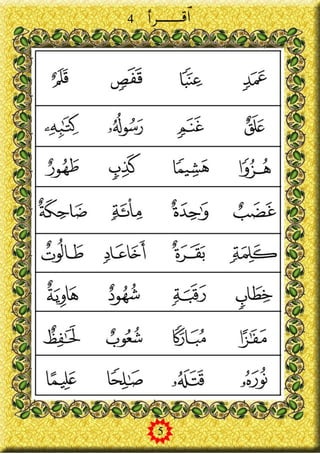 أقــرأ 4
عَمَدٍ عِنَبًا قَفَصٍ قَلَمٌ
عَلَقٌ غَنَمٍ رَسُولُهُۥ كِتَـٰبِهِۦ
هُـزُوًا هَشِيمًا كَذِبٍ طَهُورٌ
غَضَبٌ وَٰحِدَةٌ مِا۟ئَةٍ ضَاحِكَةٌ
كَلِمَةٍ بَقَـرَةٌ أَخَاعَـادٍ طَـالُوتٌ
خِطَابٍ رَقَبَـةٍ شُهُودٌ هَاوِيَةٌ
مَفَـازًا مُبَـارَكًا شُعُوبٌ لَحَـٰفِظٌ
نُورُهُۥ قَتَـلَهُۥ صَـٰلِحًا عَلِيمًا
5